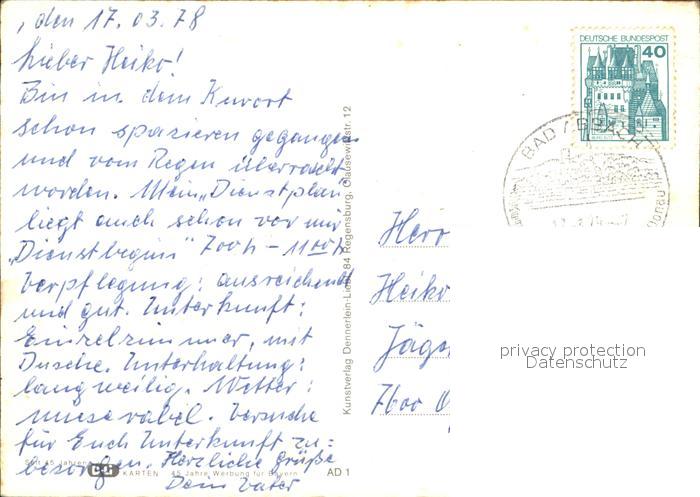 , den 17.03.78
Lieber Heiko!
Bin in dem Kurort
schon spazieren gegangen
und vom Regen überrascht
worden. Mein „Dienstplan
liegt auch schon vor mir
„Dienstbeginn" 7ooh - 11ooh
Verpflegung: ausreichend
und gut. Unterkunft:
Einzelzimmer, mit
Dusche. Unterhaltung:
langweilig. Wetter:
miserabel. Versuche
für Euch Unterkunft zu-
besorgen. Herzliche Grüße
Dein Vater
Seit 45 Jahren
KARTEN 45 Jahre Werbung für Bayern
AD 1
Kunstverlag Dennerlein-Licht, 84 Regensburg, Clausewitzstr. 12
DEUTSCHE BUNDESPOST
40
BAD ABBACH
Donau
Herr
Heiko
7600
privacy protection
Datenschutz